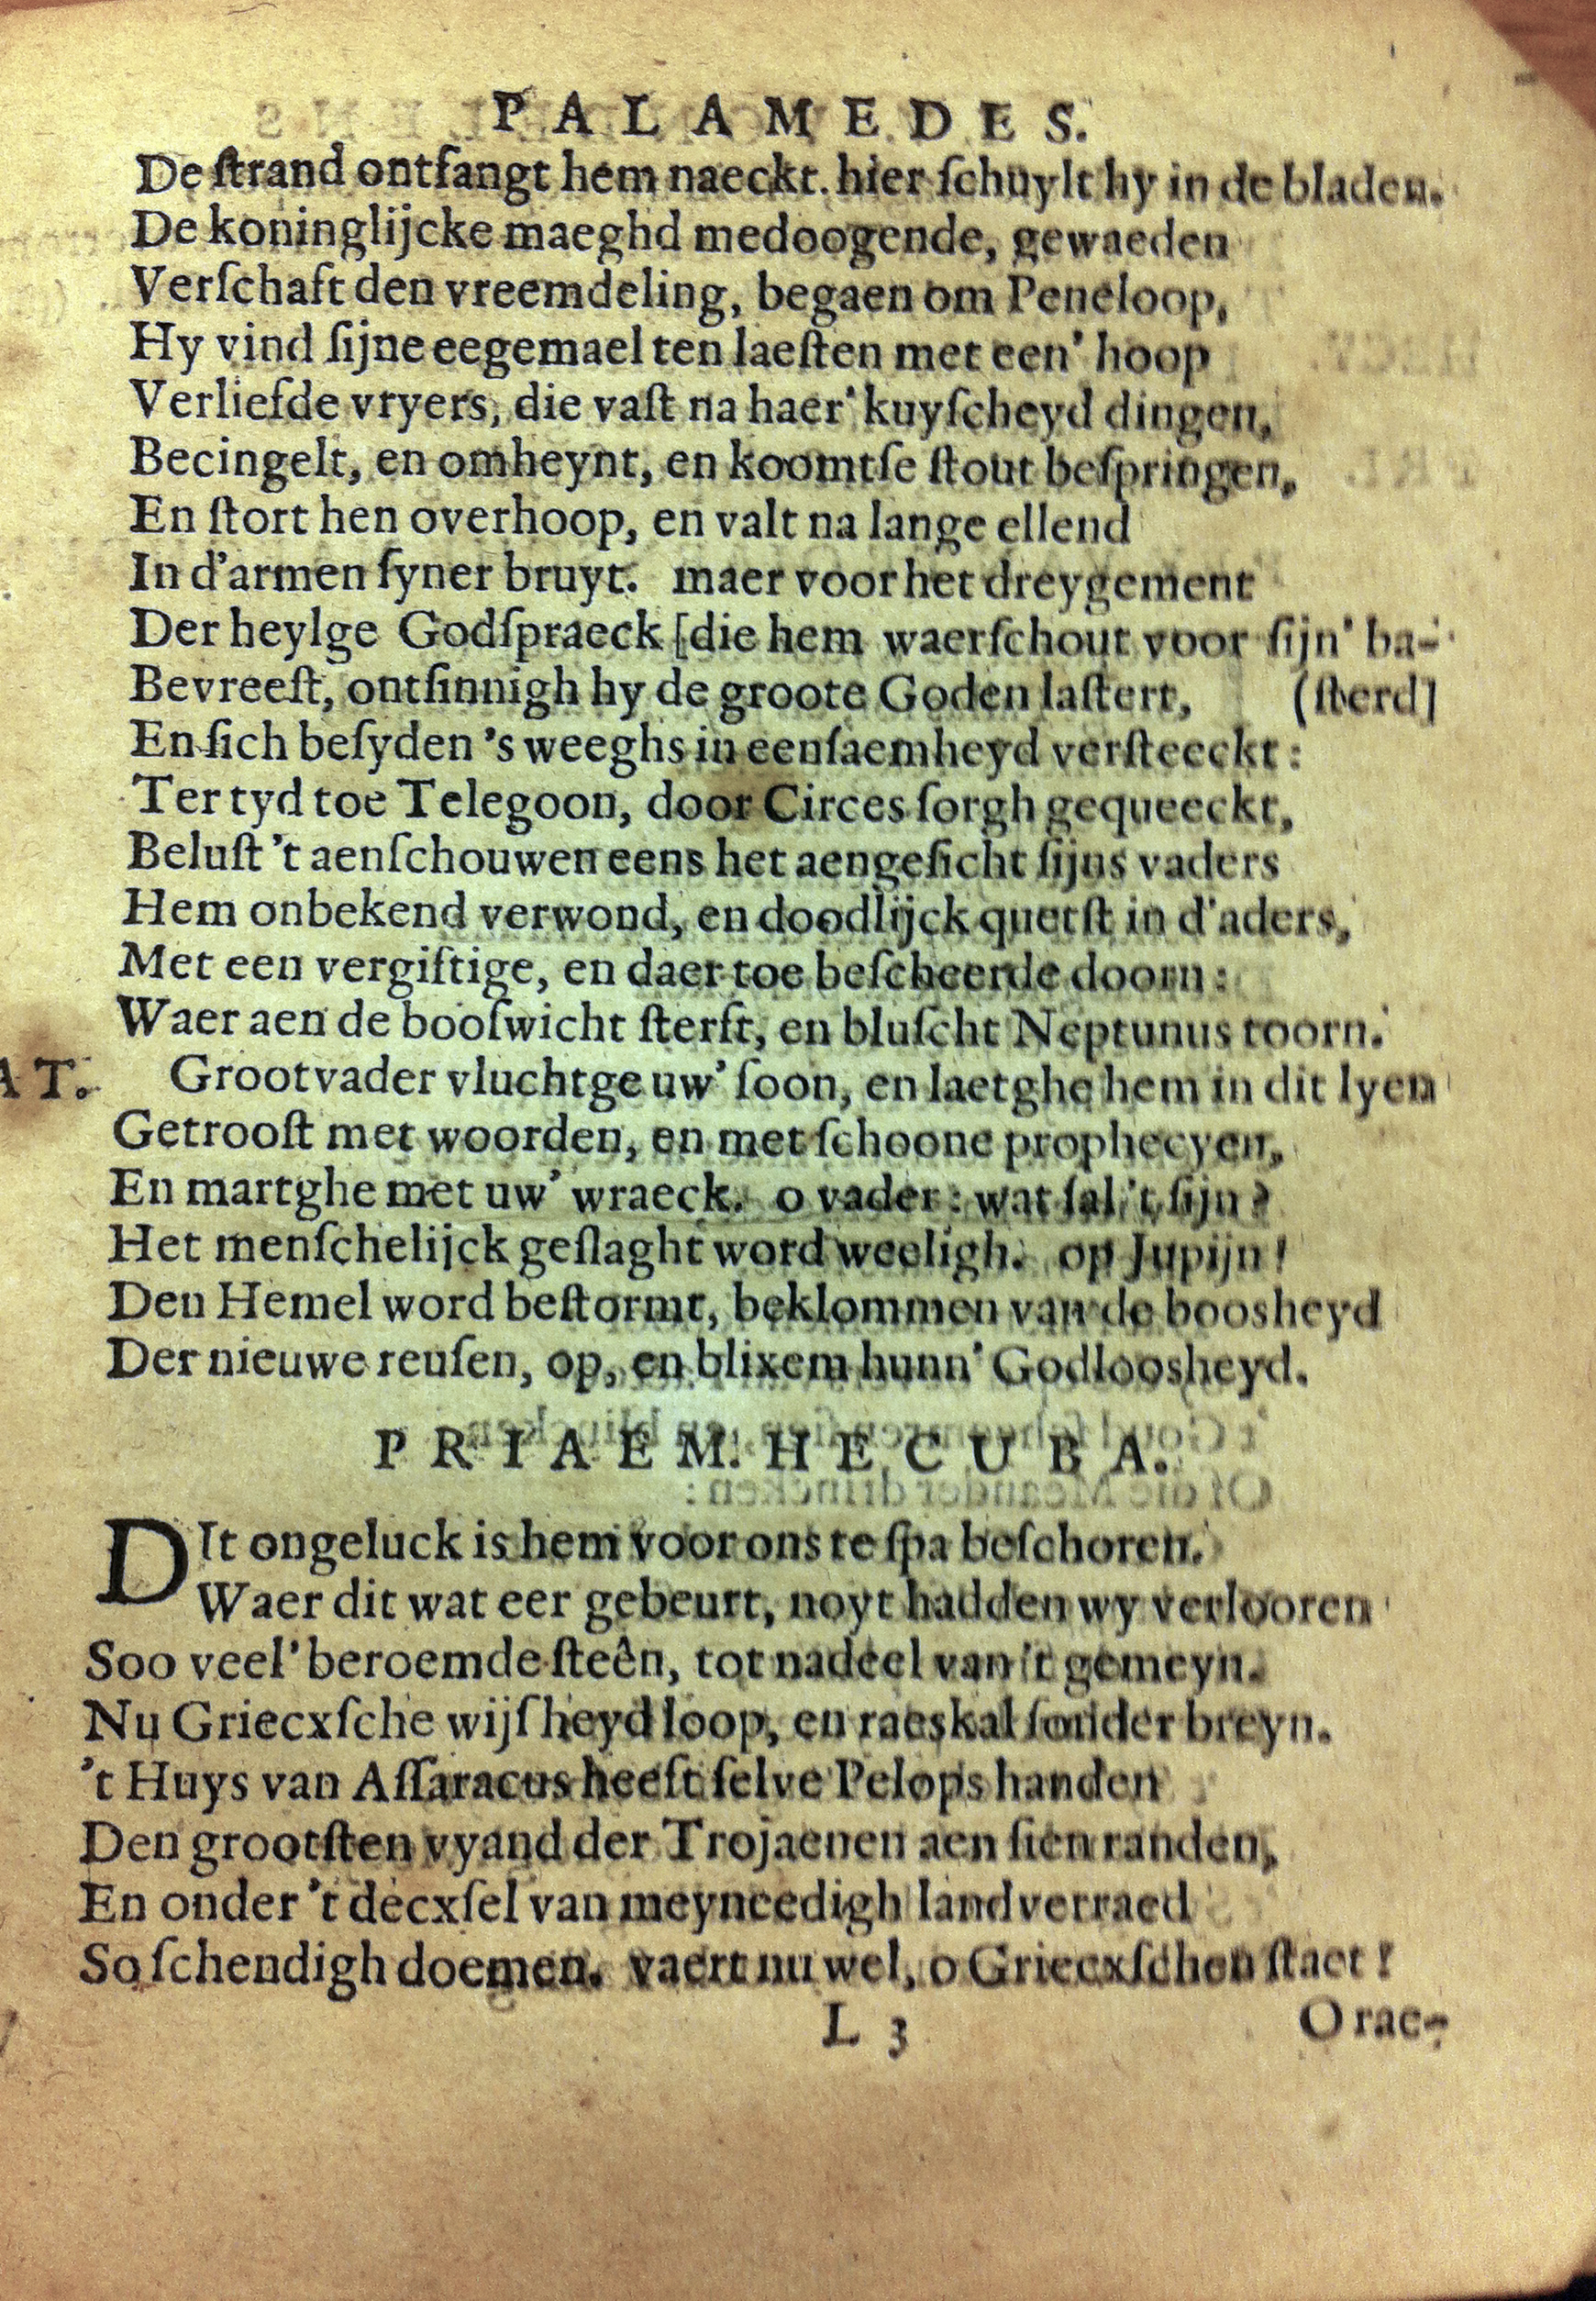 PALAMEDES.
De ſtrand ontfangt hem naeckt. hier ſchuylt hy in de bladen.
De koninglijcke maeghd medoogende, gewaeden
Verſchaft den vreemdeling, begaen om Peneloop,
Hy vind ſijne eegemael ten laeſten met een' hoop
Verliefde vryers, die vaſt na haer' kuyſcheyd dingen,
Becingelt, en omheynt, en koomtſe ſtout beſpringen,
En ſtort hen overhoop, en valt na lange ellend
In d'armen ſyner bruyt. maer voor het dreygement
Der heylge Godſpraeck [die hem waerſchout voor ſijn' ba-
Bevreeſt, ontſinnigh hy de groote Goden laſtert, (ſterd]
En ſich beſyden 's weeghs in eenſaemheyd verſteeckt:
Ter tyd toe Telegoon, door Circes ſorgh gequeeckt,
Beluſt 't aenſchouwen eens het aengeſicht ſijns vaders
Hem onbekend verwond, en doodlijck quetſt in d'aders,
Met een vergiftige, en daer toe beſcheerde doorn:
Waer aen de booſwicht ſterft, en bluſcht Neptunus toorn.
AT. Grootvader vluchtge uw' ſoon, en laetghe hem in dit lyen
Getrooſt met woorden, en met ſchoone prophecyen,
En martghe met uw' wraeck. o vader: wat ſal 't ſijn?
Het menſchelijck geſlaght word weeligh. op Jupijn!
Den Hemel word beſtormt, beklommen van de boosheyd
Der nieuwe reuſen, op, en blixem hunn' Godloosheyd.
PRIAEM. HECUBA.
DIt ongeluck is hem voor ons te ſpa beſchoren.
Waer dit wat eer gebeurt, noyt hadden wy verlooren
Soo veel' beroemde ſteên, tot nadeel van 't gemeyn.
Nu Griecxſche wijſheyd loop, en raeskal ſonder breyn.
't Huys van Aſſaracus heeft ſelve Pelops handen
Den grootſten vyand der Trojaenen aen ſien randen,
En onder 't decxſel van meyneedigh landverraed
So ſchendigh doemen. vaert nu wel, o Griecxſchen ſtaet!
L 3
O rae-